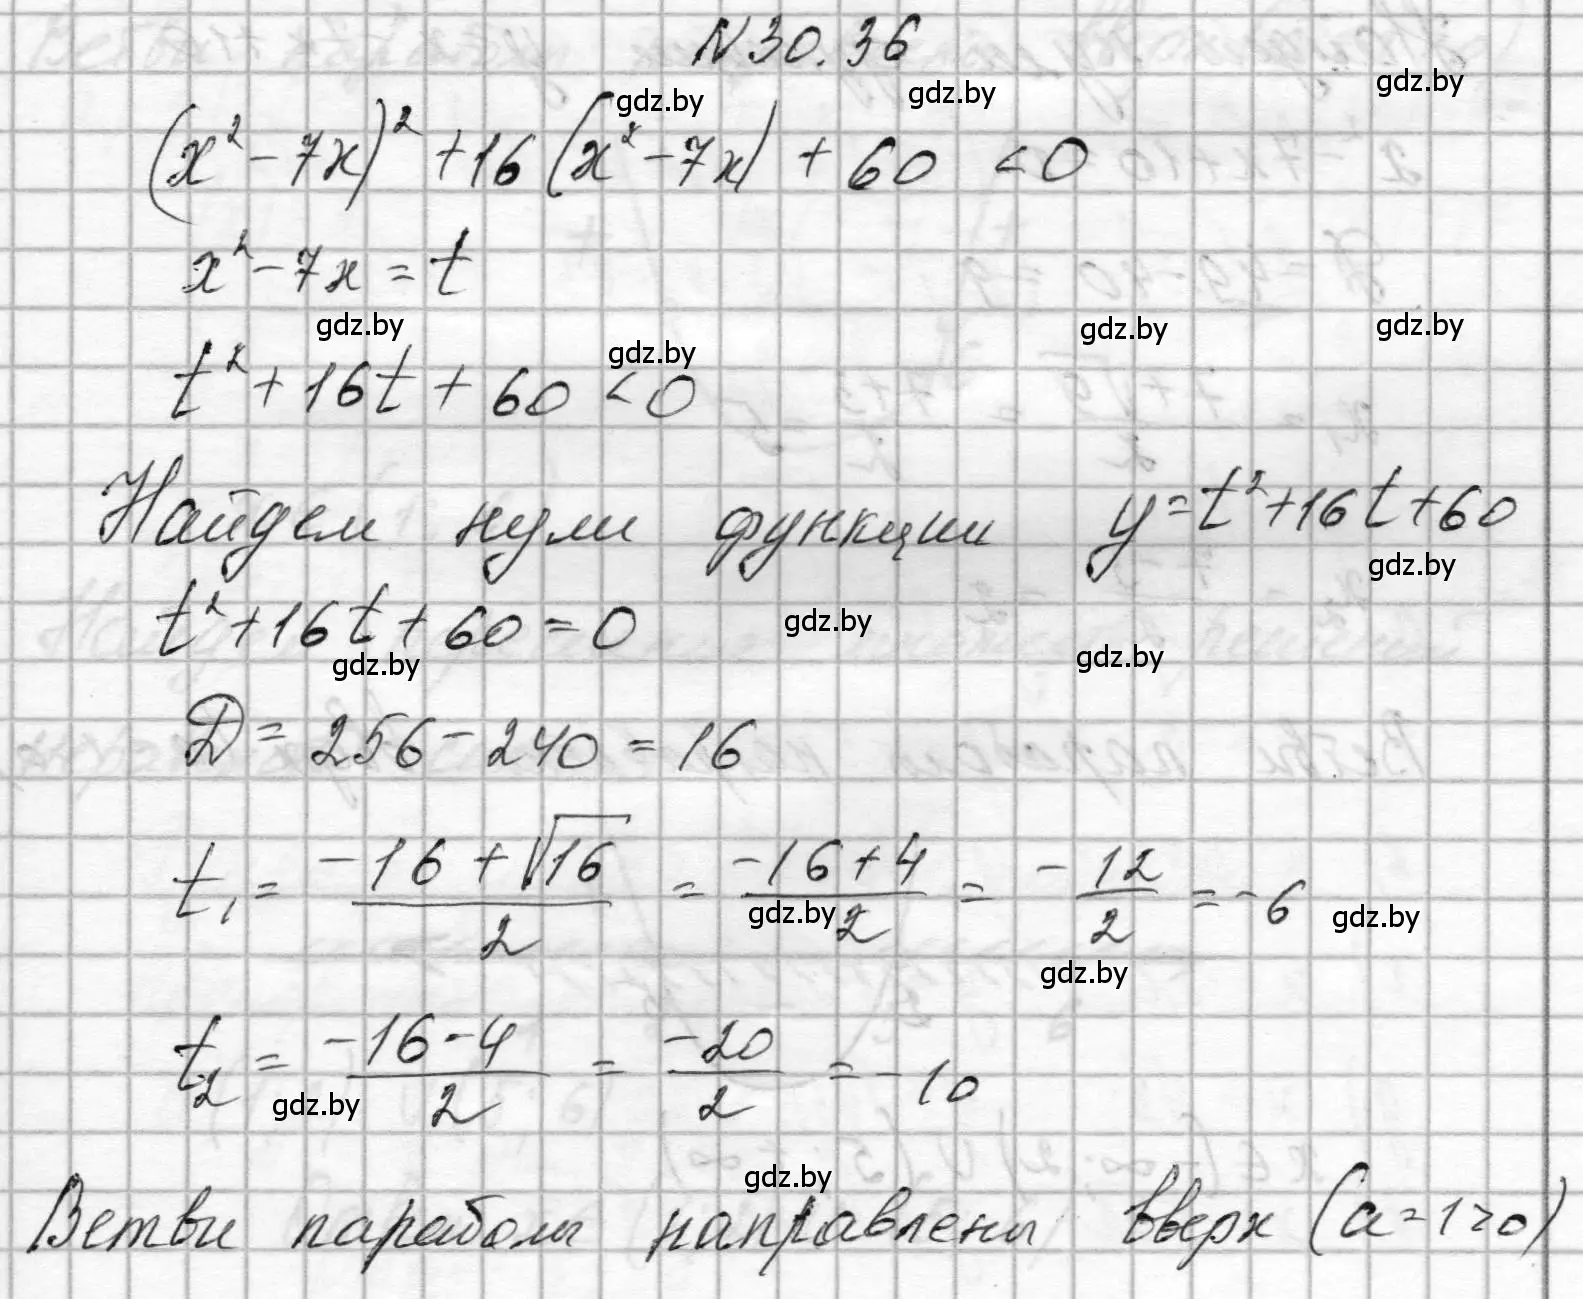 N 30.36
gdz.by gdz.by gdz.by
(x² - 7x)² + 16 (x² - 7x) + 60 < 0
x² - 7x = t
gdz.by gdz.by gdz.by gdz.by
t² + 16t + 60 < 0
Найдем нули функции y = t² + 16t + 60
gdz.by
t² + 16t + 60 = 0
gdz.by gdz.by gdz.by
D = 256 - 240 = 16
t₁ = (-16 + √16)/2 = (-16 + 4)/2 = -12/2 = -6
gdz.by gdz.by gdz.by
t₂ = (-16 - 4)/2 = -20/2 = -10
gdz.by
gdz.by
Ветви параболы направлены вверх (a = 1 > 0)